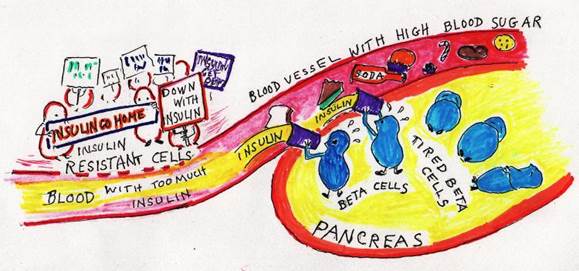 BLOOD VESSEL WITH HIGH BLOOD SUGAR
INSULIN
GET
DOWN
WITH
INSULIN
INSULIN GO HOME
INSULIN
RESISTANT CELLS
SODA
INSULIN
INSULIN
BLOOD WITH TOO MUCH
INSULIN
BETA CELLS
TIRED BETA
CELLS
PANCREAS